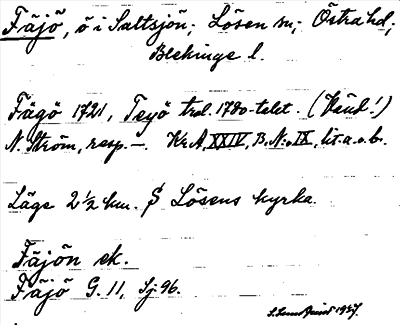 Fäjö, ö i Saltsjön; Lösen sn; Östra hd;
Blekinge l.
Fägö 1721, Teyö trol. 1700-talet. (Känd!)
N. Ström, resp. –. KrA, XXIV, B. N:o IX, lit. a. o. b.
Läge 2½ km. S Lösens kyrka.
Fäjön ek.
Fäjö G. 11, Sj. 96.
1927.